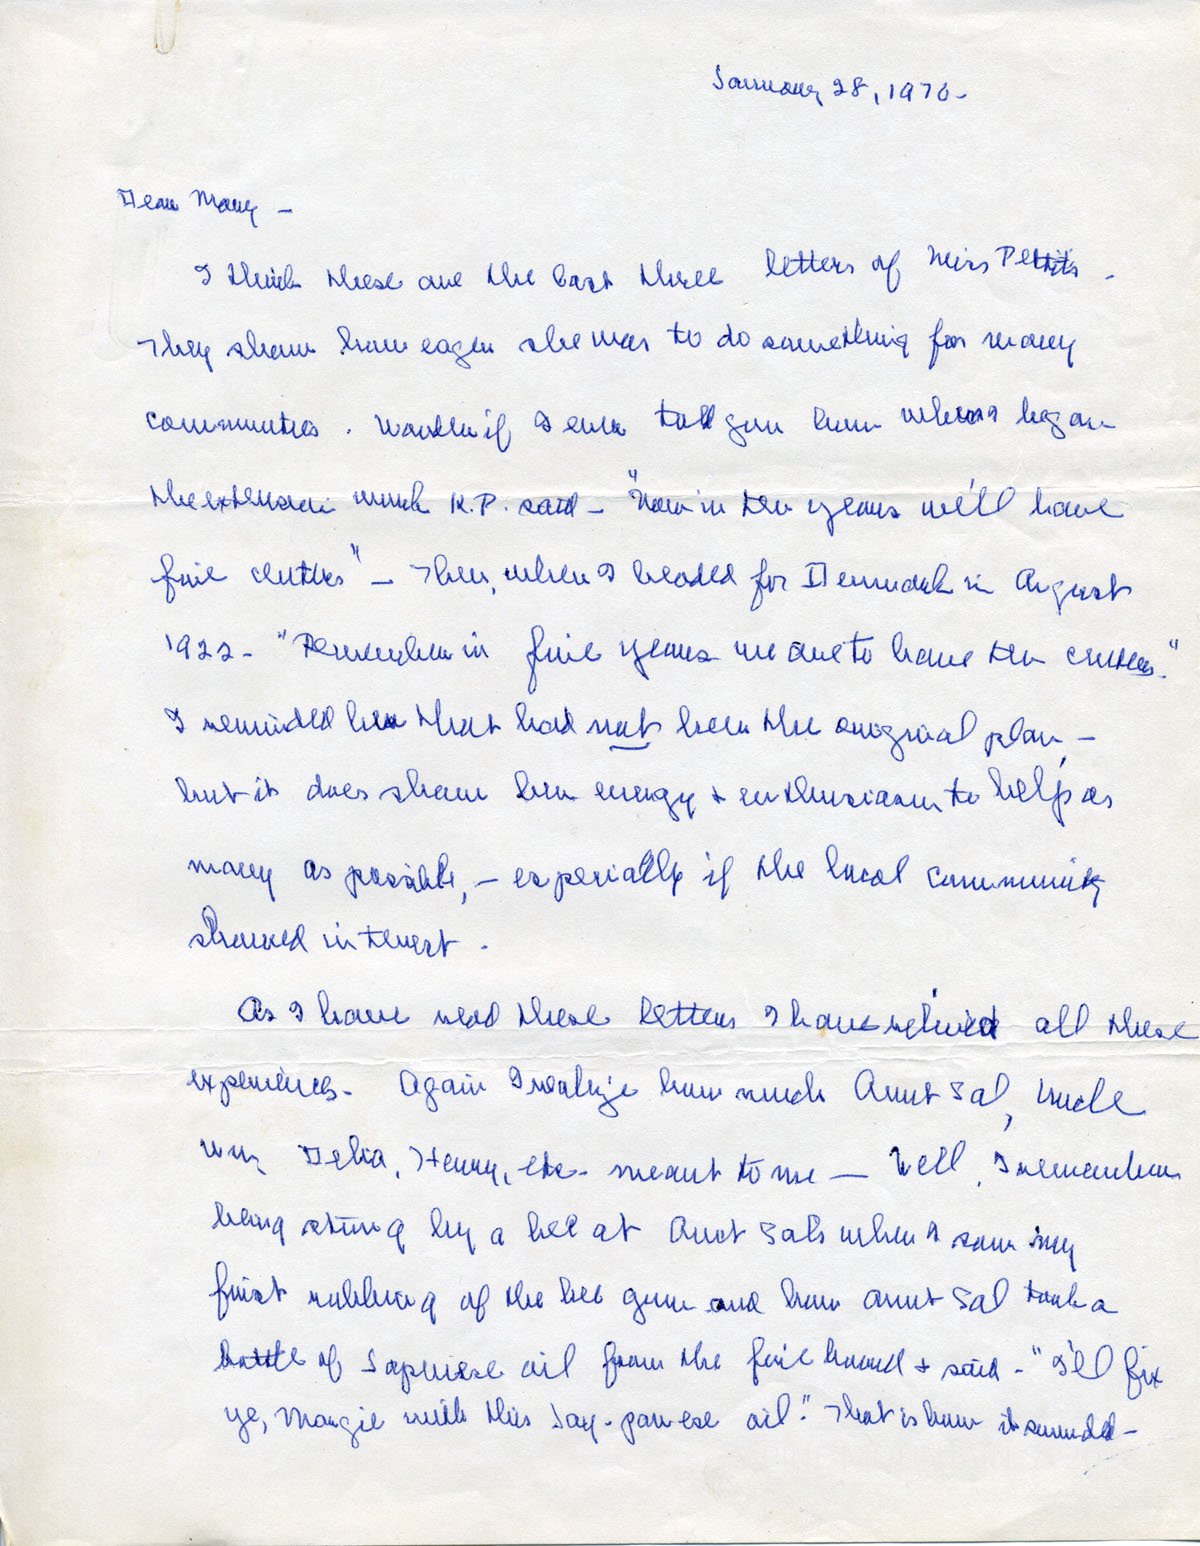 January 28, 1970-
Dear Mary -
I think these are the last three letters of Miss Pettit's -
They show how eager she was to do something for many
communities. Wonder if I ever told you how when I began
the extension work K.P. said - "Now in ten years we'll have
five centers" - Then, when I headed for Denmark in August
1922 - "Remember in five years we are to have ten centers."
I reminded her that had not been the original plan, -
but it does show her energy + enthusiasm to help as
many as possible, - especially if the local community
showed interest.
As I have read these letters I have relived all these
experiences. Again I realize how much Aunt Sal, Uncle
Wm, Delia, Henry, etc. meant to me — Well, I remember
being stung by a bee at Aunt Sal's when I saw my
first robbing of the bee gum and how Aunt Sal took a
bottle of Japnese oil from the fire board + said - "I'll fix
ye, Margie with this Jay-panese oil." That is how it sounded -